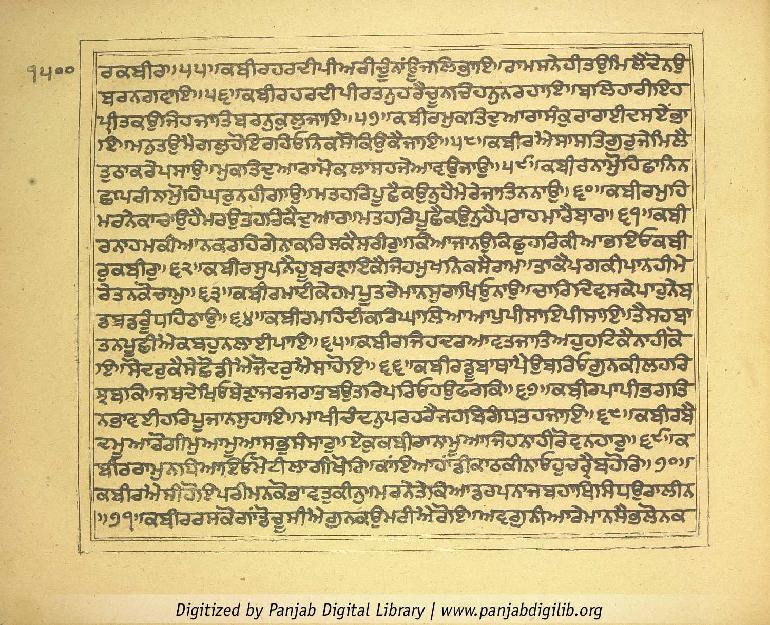 ੧੫੦੦
ਰਕਬੀਰਾ॥੫੫॥ਕਬੀਰਹਰਦੀਪੀਅਰੀਚੂੰਨਾਂਊਜਲਿਭਾਇ॥ਰਾਮਸਨੇਹੀਤਉਮਿਲੈਦੋਨਉ
ਬਰਨਗਵਾਇ॥੫੬॥ਕਬੀਰਹਰਦੀਪੀਰਤਨੁਹਰੈਚੂਨਚਿਹਨੁਨਰਹਾਇ॥ਬਲਿਹਾਰੀਇਹ
ਪ੍ਰੀਤਕਉਜਿਹਜਾਤਿਬਰਨੁਕੁਲੁਜਾਇ॥੫੭॥ਕਬੀਰਮੁਕਤਿਦੁਆਰਾਸੰਕੁਰਾਰਾਈਦਸਏਂਭਾ
ਇ॥ਮਨੁਤਉਮੈਗਲੁਹੋਇਰਹਿਓਨਿਕਸੋਕਿਉਕੈਜਾਇ॥੫੮॥ਕਬੀਰਐਸਾਸਤਿਗੁਰੁਜੇਮਿਲੈ
ਤੁਠਾਕਰੇਪਸਾਉ॥ਮੁਕਤਿਦੁਆਰਾਮੋਕਲਾਸਹਜੇਆਵਉਜਾਉ॥੫੯॥ਕਬੀਰਨਾਮੋੁਹਿਛਾਨਿਨ
ਛਾਪਰੀਨਾਮੋੁਹਿਘਰੁਨਹੀਗਾਉ॥ਮਤਹਰਿਪੂਛੈਕਉਨੁਹੈਮੇਰੇਜਾਤਿਨਨਾਉ॥੬੦॥ਕਬੀਰਮੁਹਿ
ਮਰਨੇਕਾਚਾਉਹੈਮਰਉਤਹਰਿਕੈਦੁਆਰ॥ਮਤਹਰਿਪੂਛੈਕਉਨੁਹੈਪਰਾਹਮਾਰੈਬਾਰ॥੬੧॥ਕਬੀ
ਰਨਾਹਮਕੀਆਨਕਰਹਿਗੇਨਾਕਰਿਸਕੈਸਰੀਰੁ॥ਕਿਆਜਾਨਉਕਿਛੁਹਰਿਕੀਆਭਇਓਕਬੀ
ਰੁਕਬੀਰੁ॥੬੨॥ਕਬੀਰਸੁਪਨੈਹੂਬਰੜਾਇਕੈਜਿਹਮੁਖਨਿਕਸੈਰਾਮ॥ਤਾਕੈਪਗਕੀਪਾਨਹੀਮੇ
ਰੇਤਨਕੋਚਾਮੁ॥੬੩॥ਕਬੀਰਮਾਟੀਕੇਹਮਪੂਤਰੇਮਾਨਸੁਰਾਖਿਓੁਨਾਉ॥ਚਾਰਿਦਿਵਸਕੇਪਾਹੁਨੇਬ
ਡਬਡਰੂੰਧਹਿਠਾਉ॥੬੪॥ਕਬੀਰਮਹਿਦੀਕਰਿਘਾਲਿਆਆਪੁਪੀਸਾਇਪੀਸਾਇ॥ਤੈਸਹਬਾ
ਤਨਪੂਛੀਐਕਬਹੁਨਲਾਈਪਾਇ॥੬੫॥ਕਬੀਰਜਿਹਦਰਆਵਤਜਾਤਿਅਹੁਹਟਕੈਨਾਹੀਕੋ
ਇ॥ਸੋਦਰੁਕੈਸੇਛੋਡੀਐਜੋਦਰੁਐਸਾਹੋਇ॥੬੬॥ਕਬੀਰਡੂਬਾਥਾਪੈਉਬਾਰਿਓਗੁਨਕੀਲਹਰਿ
ਝਬਕਿ॥ਜਬਦੇਖਿਓਬੇੜਾਜਰਜਰਾਤਬਉਤਰਿਪਰਿਓਹਉਫਰਕਿ॥੬੭॥ਕਬੀਰਪਾਪੀਭਗਤਿ
ਨਭਾਵਈਹਰਿਪੂਜਾਨਸੁਹਾਇ॥ਮਾਖੀਚੰਦਨੁਪਰਹਰੈਜਹਬਿਗੰਧਤਹਜਾਇ॥੬੮॥ਕਬੀਰਬੈ
ਦਮੂਆਰੋਗੀਮੂਆਮੂਆਸਭੁਸੰਸਾਰੁ॥ਏਕੁਕਬੀਰਾਨਾਮੂਆਜਿਹਨਾਹੀਰੋਵਨਹਾਰੁ॥੬੯॥ਕ
ਬੀਰਰਾਮੁਨਧਿਆਇਓਮੋਟੀਲਾਗੀਖੋਰਿ॥ਕਾਇਆਹਾਂਡੀਕਾਠਕੀਨਾਓਹੁਚਰ੍ਹੈਬਹੋਰਿ॥੭੦॥
ਕਬੀਰਐਸੀਹੋਇਪਰੀਮਨਕੋਭਾਵਤੁਕੀਨੁ॥ਮਰਨੇਤੇਕਿਆਡਰਪਨਾਜਬਹਾਥਿਸਿਧਉਰਾਲੀਨ
॥੭੧॥ਕਬੀਰਰਸਕੋਗਾਂਡੋਚੂਸੀਐਗੁਨਕਉਮਰੀਐਰੋਇ॥ਅਵਗੁਨੀਆਰੇਮਾਨਸੈਭਲੋਨਕ
Digitized by Panjab Digital Library | www.panjabdigilib.org